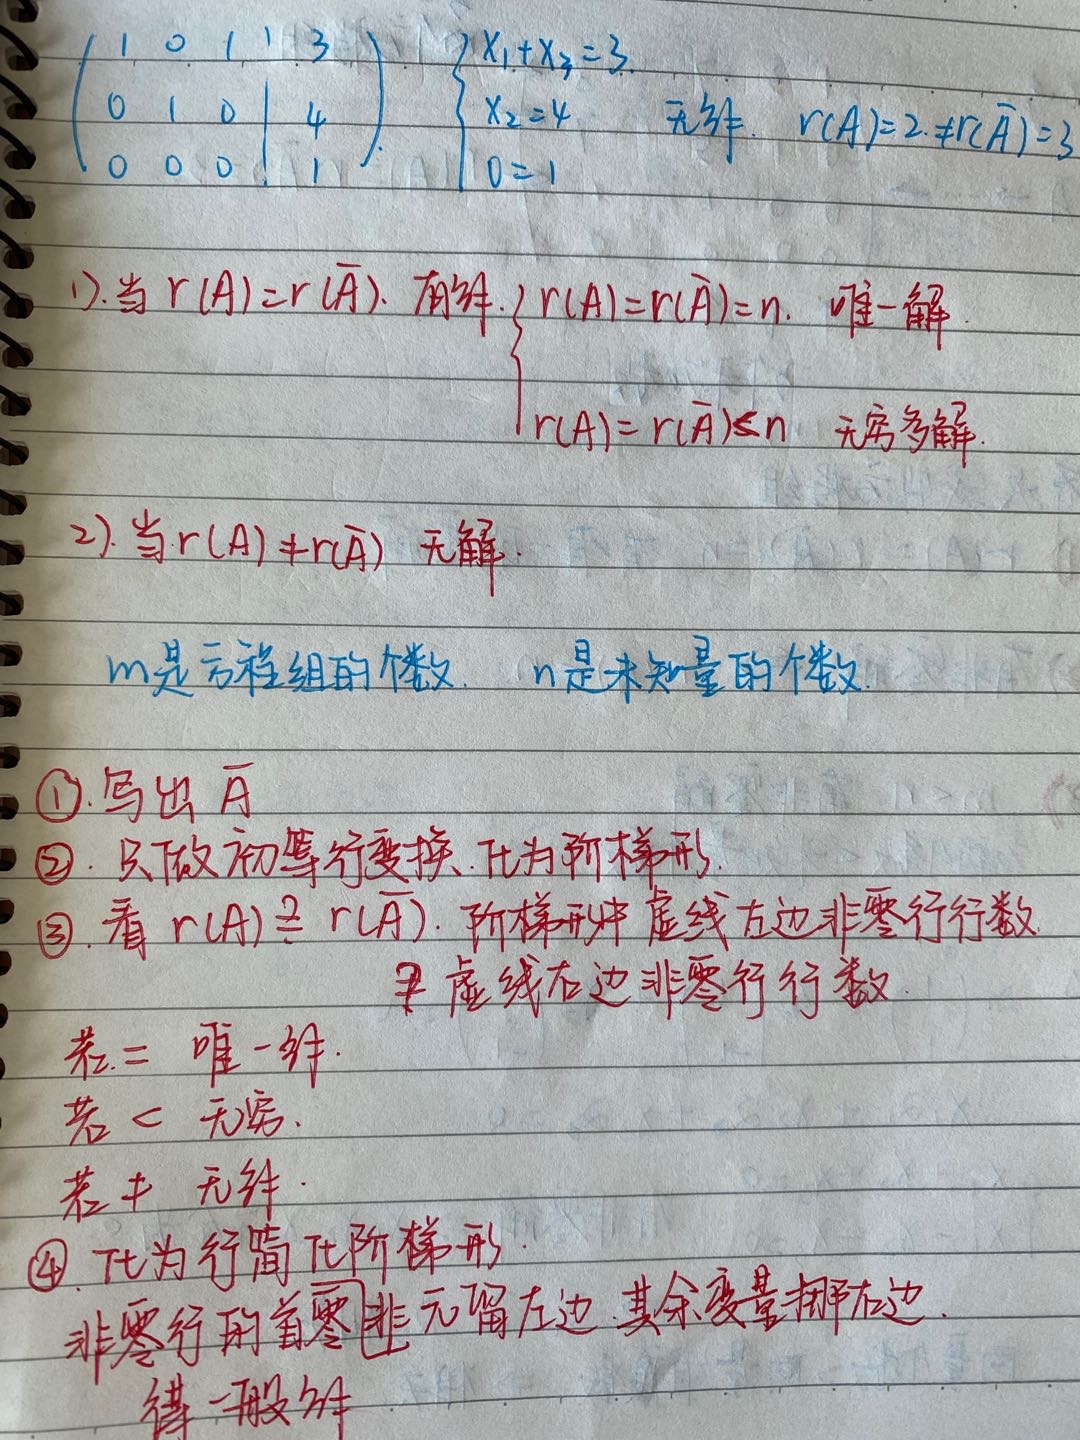 ( 1 0 1 | 3 )  { x₁+x₃=3.
( 0 1 0 | 4 )  { x₂=4  无解. r(A)=2.≠r(Ā)=3
( 0 0 0 | 1 )  { 0=1
1).当 r(A)=r(Ā). 有解. { r(A)=r(Ā)=n. 唯一解.
r(A)=r(Ā)<n 无穷多解.
2).当 r(A)≠r(Ā) 无解.
m是方程组的个数. n是未知量的个数.
①.写出 Ā
②.只做初等行变换.化为阶梯形.
③.看 r(A) ≟ r(Ā). 阶梯形中 虚线左边非零行行数
≟ 虚线右边非零行行数.
若= 唯一解.
若< 无穷.
若≠ 无解.
④ 化为行简化阶梯形.
非零行的首零非元留左边.其余变量挪右边.
得一般解